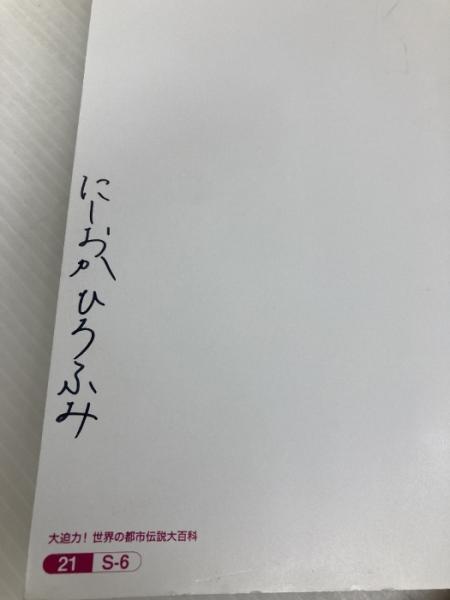 にしおか ひろふみ
大迫力！世界の都市伝説大百科
21 S-6